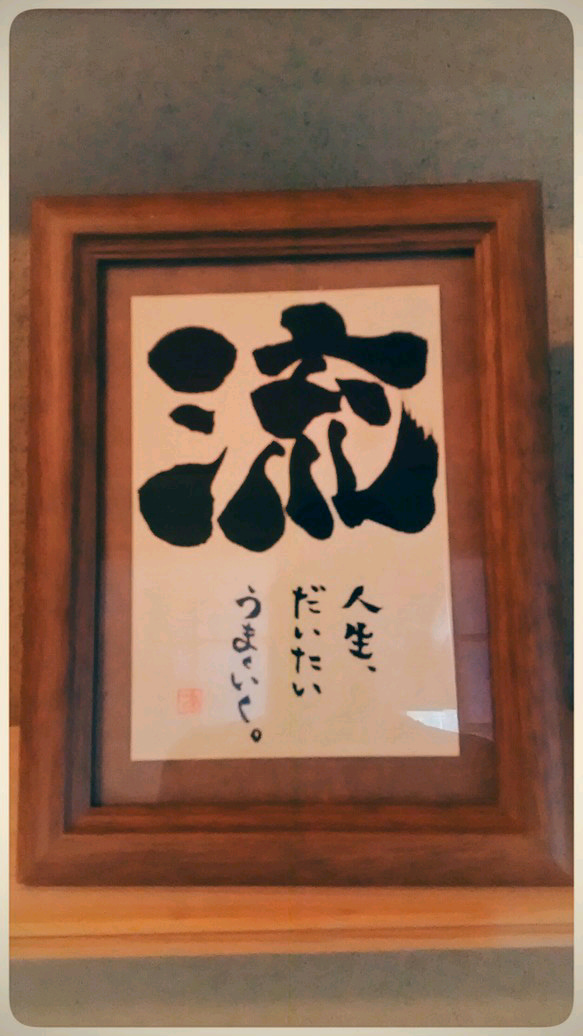 流
人生、
だいたい
うまくいく。